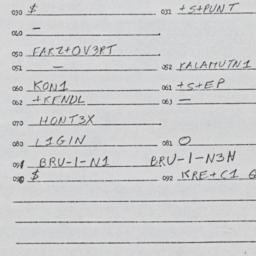 030 $ 031 +S+PUNT
040 —
050 FARZ+OV3PT
051 — 052 KALAMUTN1
060 KON1 061 +S+EP
062 +KFNDL 063 —
070 HONT3X
080 L1GIN 081 O
091 BRU-1-N1 BRU-1-N3H
090 $ 092 KRE+C1 G